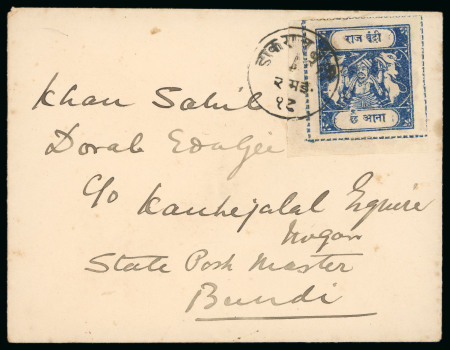 राज बूंदी
छै आना
डाक राज
२ मई.
१५
Khan Sahib
Dorab Eduljee
c/o Kanhejalal Esquire
State Post Master
Bundi